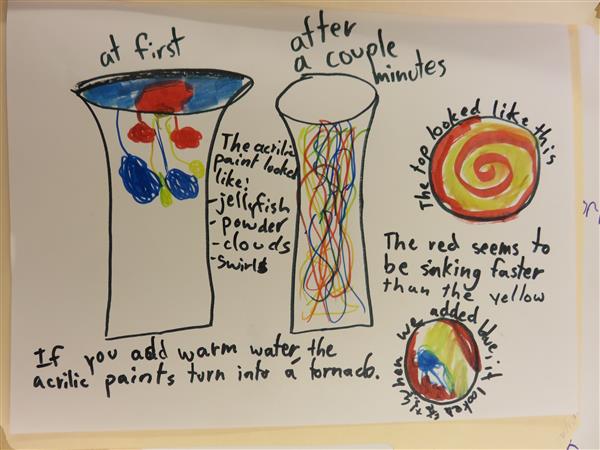 at first
after
a couple
minutes
The acrilic
paint looked
like:
-jellyfish
-powder
-clouds
-swirls
The top looked like this
The red seems to
be sinking faster
than the yellow
when we added blue, it looked
If you add warm water, the
acrilic paints turn into a tornado.